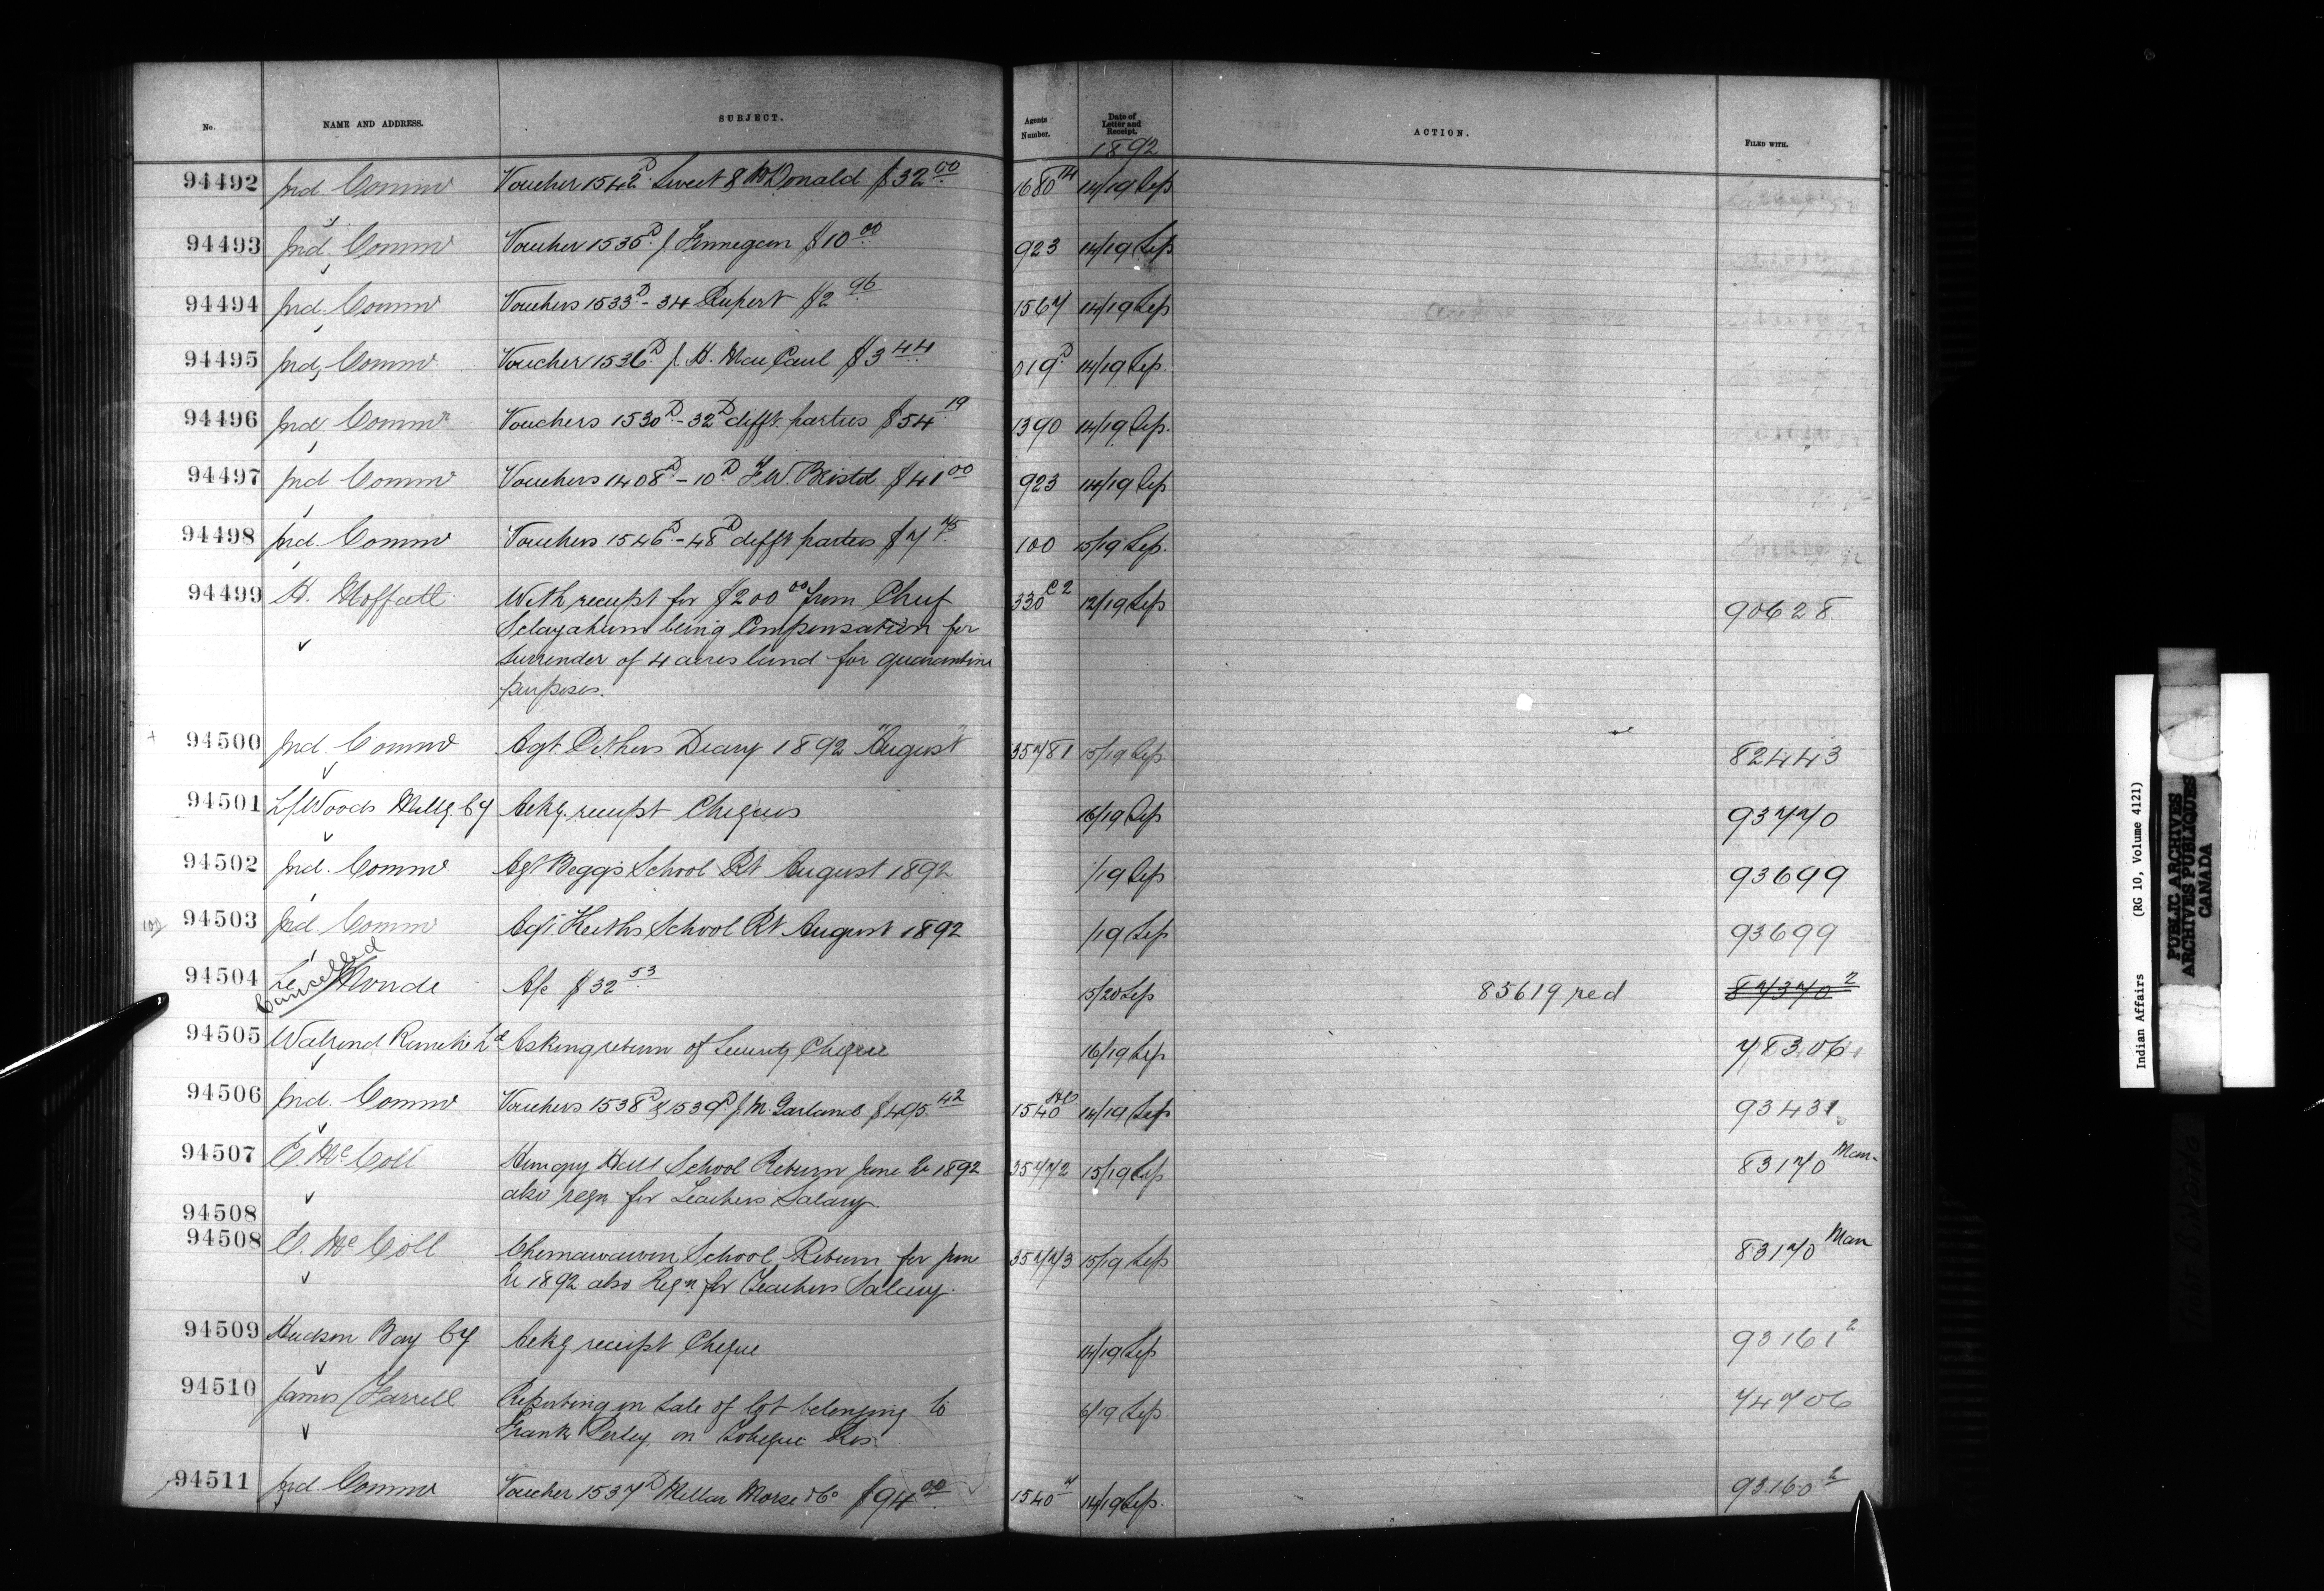 No. NAME AND ADDRESS. SUBJECT. Agents Number. Date of Letter and Receipt. ACTION. FILED WITH.
1892
94492 Ind. Commr Voucher 1542D Sweet & McDonald $32.00 1680 14/19 Sep
94493 Ind. Commr Voucher 1535D J. Finnegan $10.00 923 14/19 Sep
94494 Ind. Commr Vouchers 1533D - 34 Rupert $2.96 1567 14/19 Sep
94495 Ind. Commr Voucher 1536D J. H. MacCaul $3.44 019D 14/19 Sep.
94496 Ind. Commr Vouchers 1530D - 32D difft. parties $54.19 1390 14/19 Sep.
94497 Ind. Commr Vouchers 1408D - 10D F.W. Bristol $41.00 923 14/19 Sep
94498 Ind. Commr Vouchers 1546D - 48D difft parties $7.75 100 15/19 Sep.
94499 H. Moffatt With receipt for $200.00 from Chief 330 C2 12/19 Sep 90628
being Compensation for
surrender of 4 acres land for quarantine
purposes.
94500 Ind. Commr Agt. Pithers Diary 1892 "August" 35781 15/19 Sep. 82443
94501 L/Woods Millg. Cy Ackg. receipt Cheques 16/19 Sep 93770
94502 Ind. Commr Agt Beggs School Rt August 1892 /19 Sep 93699
94503 Ind. Commr Agt. Keiths School Rt August 1892 /19 Sep 93699
94504 Le Monde A/c $32.53 15/20 Sep 85619 red 87370 2
Cancelled
94505 Walrond Ranche Ld Asking return of Security Cheque 16/19 Sep 78306
94506 Ind. Commr Vouchers 1538D & 1539D J.N. Garland $495.42 1540 14/19 Sep 93431
94507 E. McColl Hungry Hall School Return June Qr 1892 35772 15/19 Sep 83170 Man.
also reqn for Teachers Salary.
94508
94508 E. McColl Chemawawin School Return for June 35773 15/19 Sep 83170 Man
Qr 1892 also Reqn for Teachers Salary.
94509 Hudson Bay Cy Ackg receipt Cheque 14/19 Sep 93161 2
94510 James Farrell Reporting on sale of lot belonging to 6/19 Sep. 74706
Frank Perley on Tobique Res.
94511 Ind. Commr Voucher 1537D Millar Morse & Co $94.00 1540 7 14/19 Sep. 93160 2
Indian Affairs (RG 10, Volume 4121)
PUBLIC ARCHIVES
ARCHIVES PUBLIQUES
CANADA